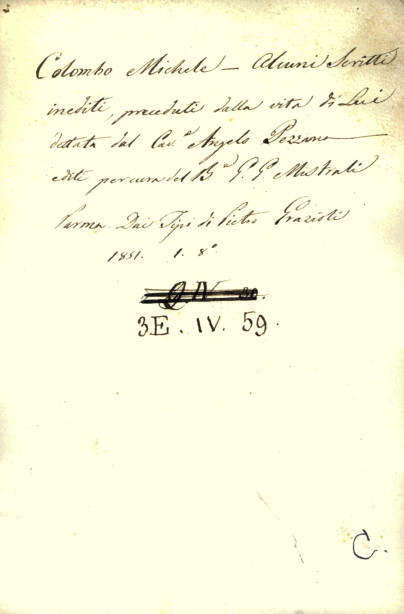 Colombo Michele – Alcuni Scritti
inediti, preceduti dalla vita di Lui
dettata dal Cav.e Angelo Pezzana
edite per cura del B.e G. G. Mistrali
Parma. Dai Tipi di Pietro Grazioli
1851. 1. 8°
Q. IV 30.
3E. IV. 59.
C.